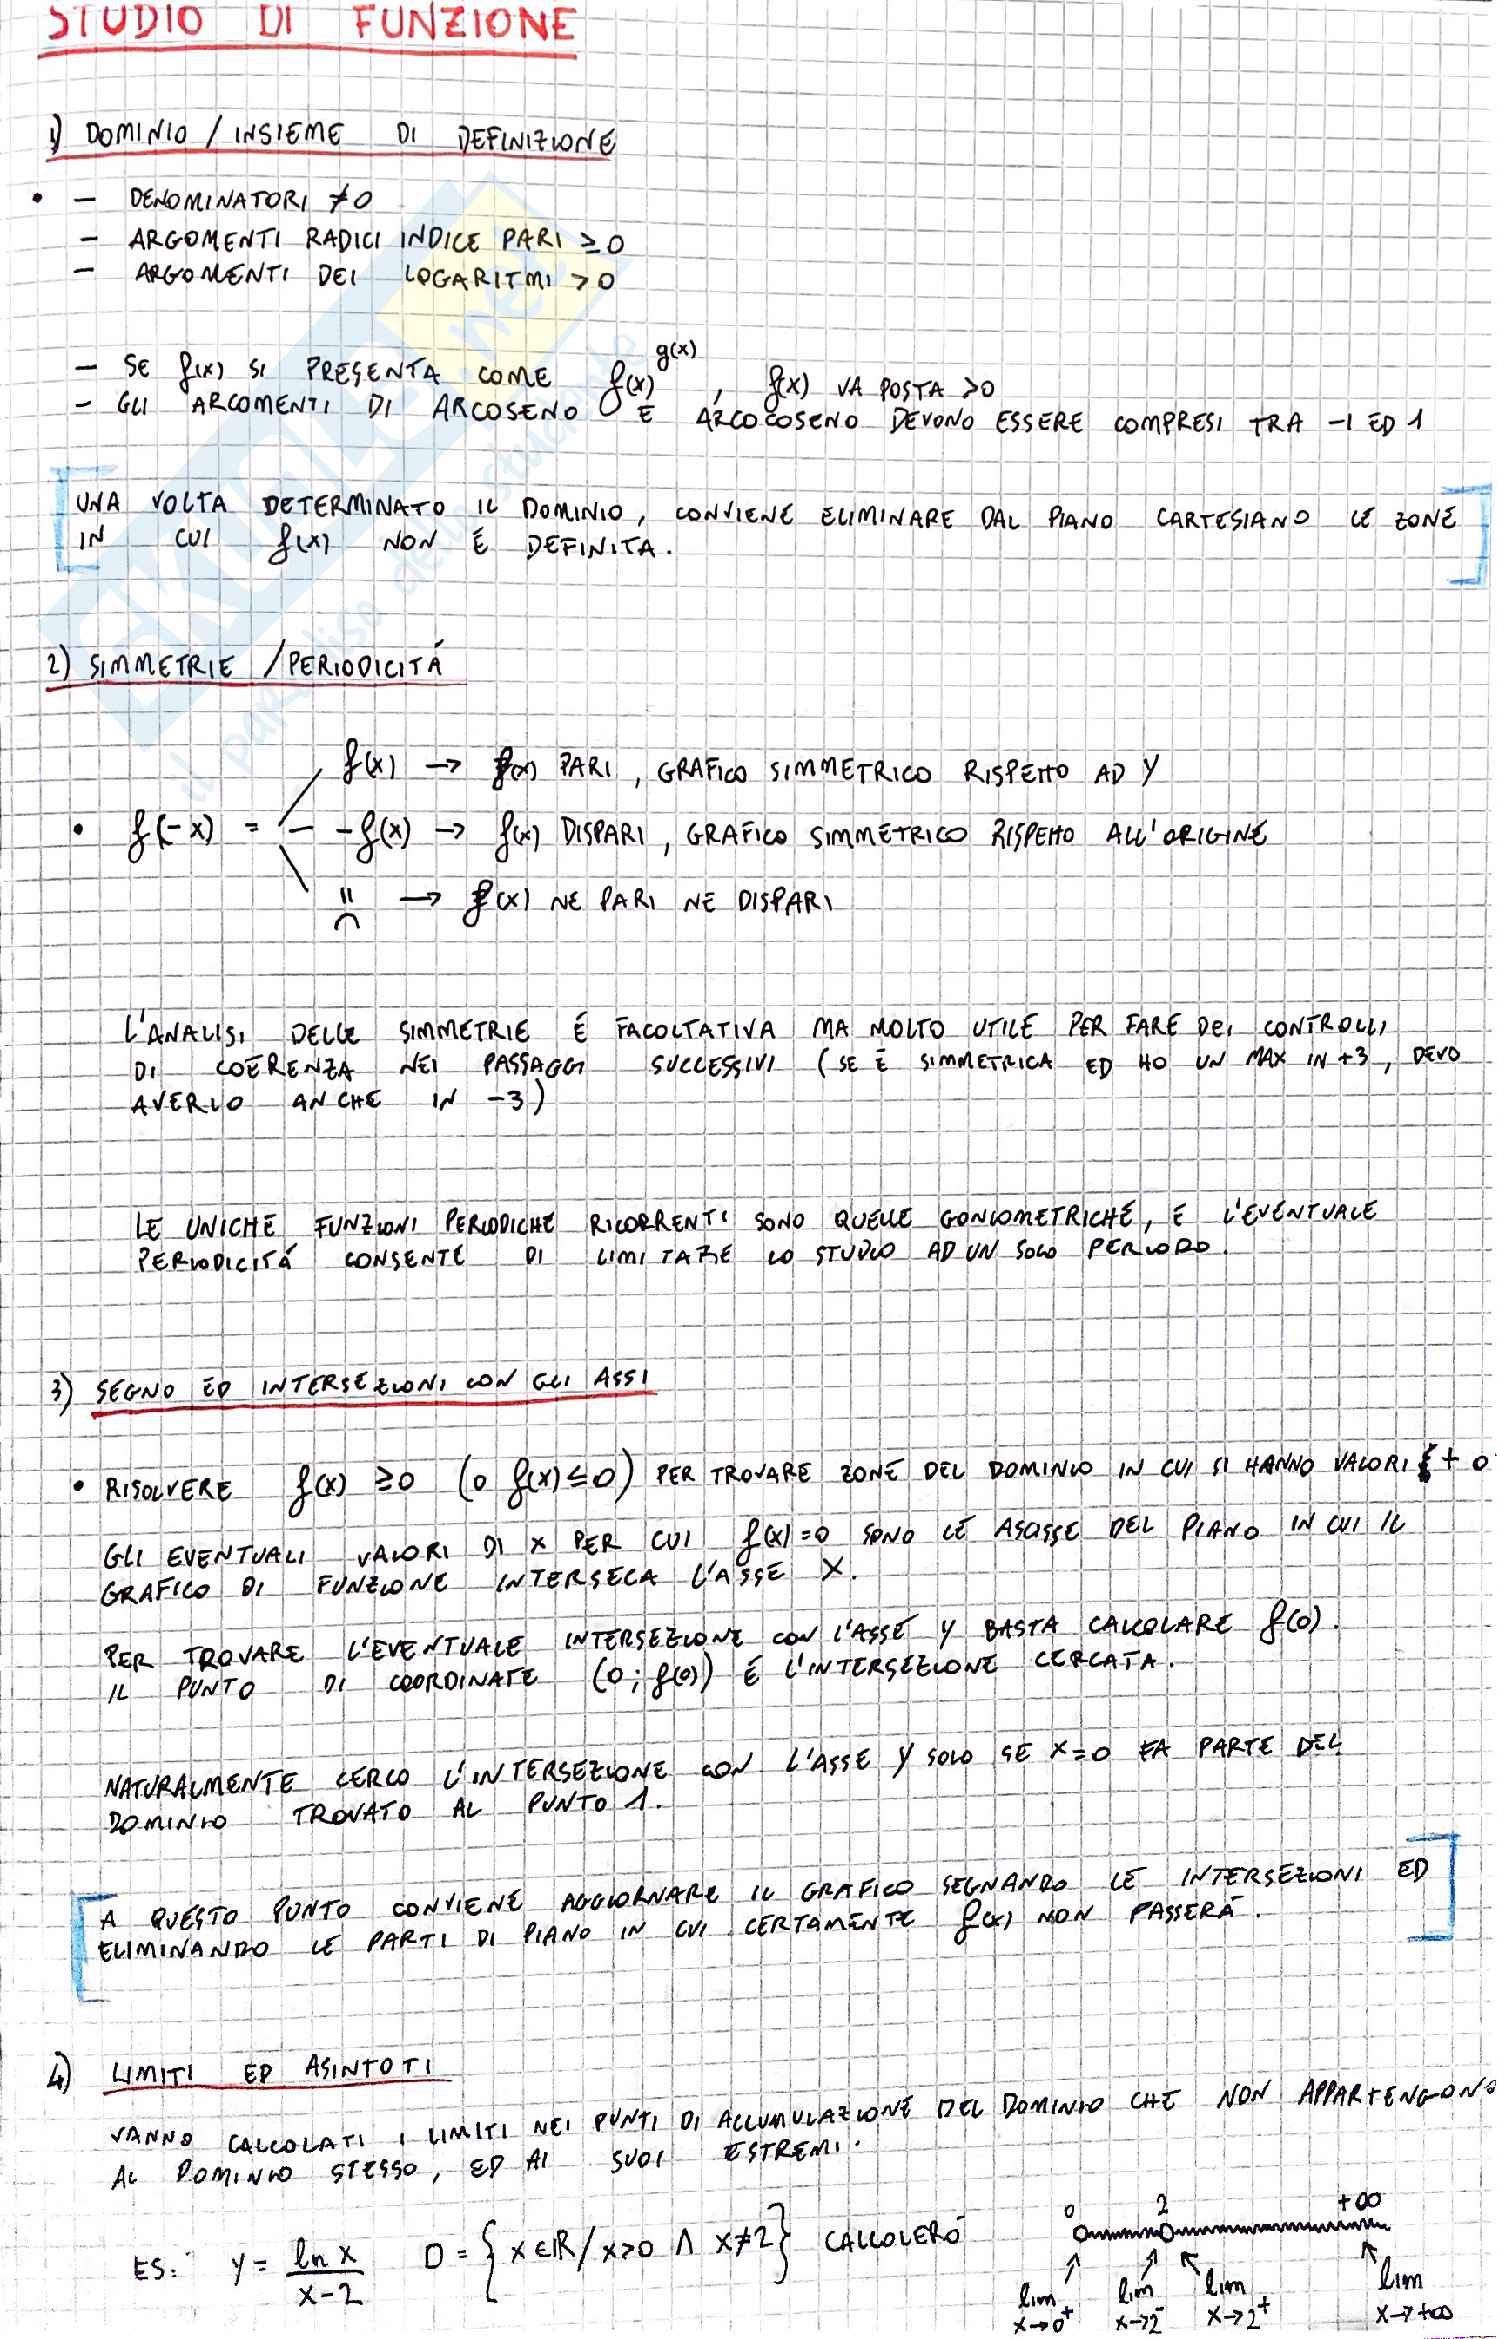 STUDIO DI FUNZIONE
1) DOMINIO / INSIEME DI DEFINIZIONE
• - DENOMINATORI ≠0
- ARGOMENTI RADICI INDICE PARI ≥0
- ARGOMENTI DEI LOGARITMI >0
- SE f(x) SI PRESENTA COME f(x)^g(x), f(x) VA POSTA >0
- GLI ARGOMENTI DI ARCOSENO E ARCOCOSENO DEVONO ESSERE COMPRESI TRA -1 ED 1
UNA VOLTA DETERMINATO IL DOMINIO, CONVIENE ELIMINARE DAL PIANO CARTESIANO LE ZONE
IN CUI f(x) NON É DEFINITA.
2) SIMMETRIE / PERIODICITÁ
f(x) → f(x) PARI, GRAFICO SIMMETRICO RISPETTO AD Y
• f(-x) = - -f(x) → f(x) DISPARI, GRAFICO SIMMETRICO RISPETTO ALL'ORIGINE
→ f(x) NE PARI NE DISPARI
L'ANALISI DELLE SIMMETRIE É FACOLTATIVA MA MOLTO UTILE PER FARE DEI CONTROLLI
DI COERENZA NEI PASSAGGI SUCCESSIVI (SE É SIMMETRICA ED HO UN MAX IN +3, DEVO
AVERLO ANCHE IN -3)
LE UNICHE FUNZIONI PERIODICHE RICORRENTI SONO QUELLE GONIOMETRICHE, E L'EVENTUALE
PERIODICITÁ CONSENTE DI LIMITARE LO STUDIO AD UN SOLO PERIODO.
3) SEGNO ED INTERSEZIONI CON GLI ASSI
• RISOLVERE f(x) ≥0 (o f(x)≤0) PER TROVARE ZONE DEL DOMINIO IN CUI SI HANNO VALORI + o
GLI EVENTUALI VALORI DI X PER CUI f(x)=0 SONO LE ASCISSE DEL PIANO IN CUI IL
GRAFICO DI FUNZIONE INTERSECA L'ASSE X.
PER TROVARE L'EVENTUALE INTERSEZIONE CON L'ASSE Y BASTA CALCOLARE f(0).
IL PUNTO DI COORDINATE (0; f(0)) É L'INTERSEZIONE CERCATA.
NATURALMENTE CERCO L'INTERSEZIONE CON L'ASSE Y SOLO SE X=0 FA PARTE DEL
DOMINIO TROVATO AL PUNTO 1.
A QUESTO PUNTO CONVIENE AGGIORNARE IL GRAFICO SEGNANDO LE INTERSEZIONI ED
ELIMINANDO LE PARTI DI PIANO IN CUI CERTAMENTE f(x) NON PASSERÁ.
4) LIMITI ED ASINTOTI
VANNO CALCOLATI I LIMITI NEI PUNTI DI ACCUMULAZIONE DEL DOMINIO CHE NON APPARTENGONO
AL DOMINIO STESSO, ED AI SUOI ESTREMI.
ES: y = ln x / x-2 D = {X∈ℝ / X>0 ∧ X≠2} CALCOLERÓ
0 2 +∞
lim x→0⁺ lim x→2⁻ lim x→2⁺ lim x→+∞